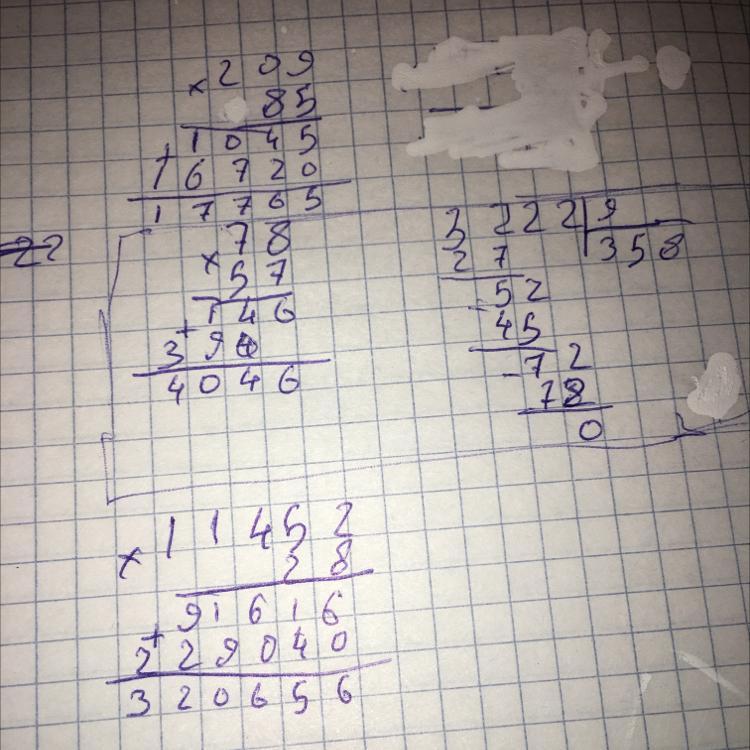 × 209
85
1045
+ 16720
17765
22
× 78
57
146
+ 390
4046
3222 9
27 358
- 52
45
- 72
72
0
× 11452
28
91616
+ 229040
320656